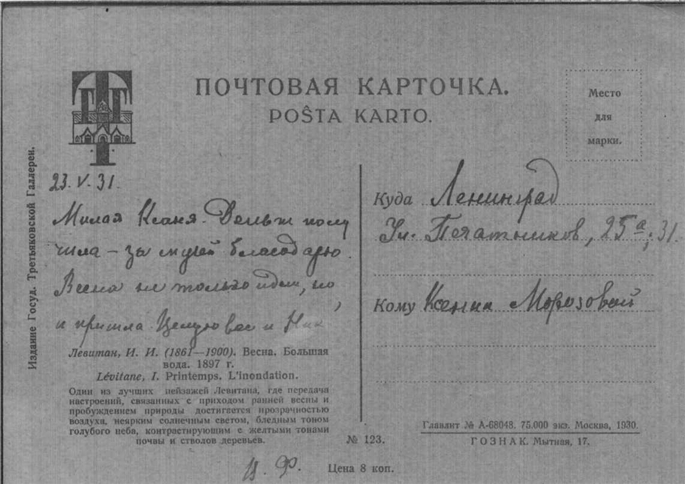 ПОЧТОВАЯ КАРТОЧКА.
POŜTA KARTO.
Место
для
марки.
Издание Госуд. Третьяковской Галлереи.
23.V.31.
Милая Ксаня. Деньги полу
чила – за музей благодарю.
Весна не только идет, но
и пришла. Целую вас и
Левитан, И. И. (1861—1900). Весна. Большая
вода. 1897 г.
Lévitane, I. Printemps. L'inondation.
Один из лучших пейзажей Левитана, где передача
настроений, связанных с приходом ранней весны и
пробуждением природы достигается прозрачностью
воздуха, неярким солнечным светом, бледным тоном
голубого неба, контрастирующим с желтыми тонами
почвы и стволов деревьев.
Куда Ленинград
Ул. Печатников, 25а, 31.
Кому Ксении Морозовой
№ 123.
Цена 8 коп.
Главлит № А-68048. 75.000 экз. Москва, 1930.
ГОЗНАК. Мытная, 17.